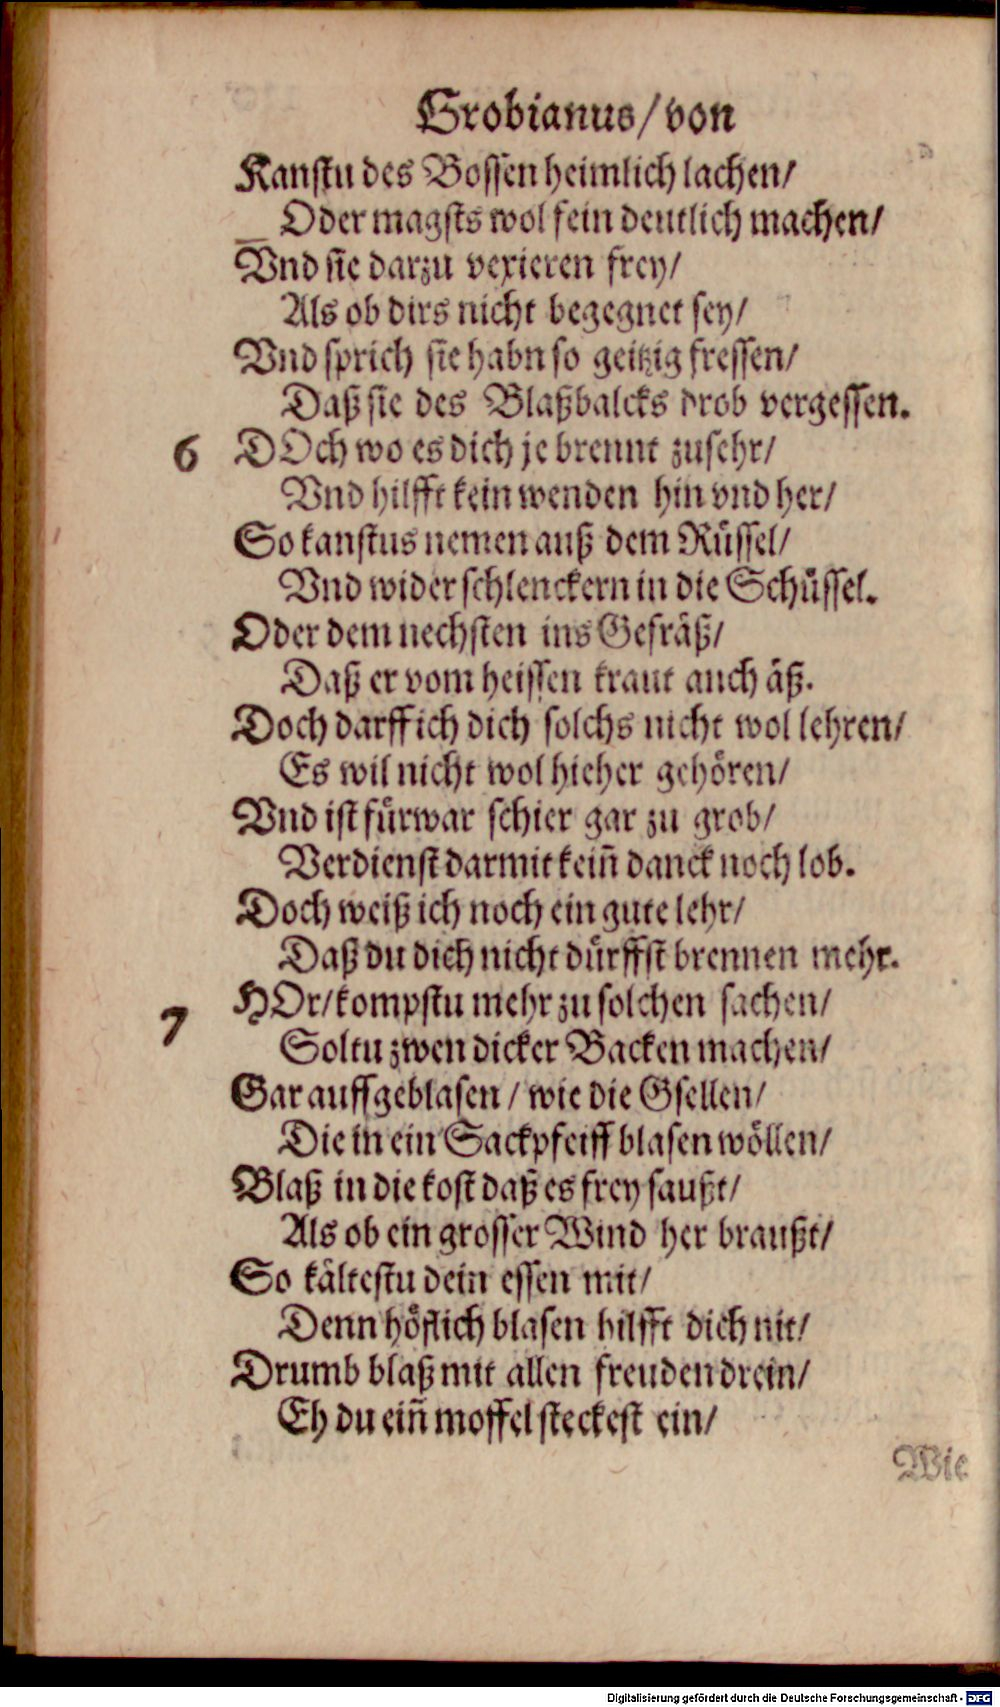 Grobianus/ von
Kanstu des Bossen heimlich lachen/
Oder magsts wol fein deutlich machen/
Vnd sie darzu vexieren frey/
Als ob dirs nicht begegnet sey/
Vnd sprich sie habn so geitzig fressen/
Daß sie des Blaßbalcks drob vergessen.
6 DOch wo es dich je brennt zusehr/
Vnd hilfft kein wenden hin vnd her/
So kanstus nemen auß dem Rüssel/
Vnd wider schlenckern in die Schüssel.
Oder dem nechsten ins Gefräß/
Daß er vom heissen kraut auch äß.
Doch darff ich dich solchs nicht wol lehren/
Es wil nicht wol hieher gehören/
Vnd ist fürwar schier gar zu grob/
Verdienst darmit keiñ danck noch lob.
Doch weiß ich noch ein gute lehr/
Daß du dich nicht dürffst brennen mehr.
7 HOr/ kompstu mehr zu solchen sachen/
Soltu zwen dicker Backen machen/
Gar auffgeblasen / wie die Gsellen/
Die in ein Sackpfeiff blasen wöllen/
Blaß in die kost daß es frey saußt/
Als ob ein grosser Wind her braußt/
So kältestu dein essen mit/
Denn höflich blasen hilfft dich nit/
Drumb blaß mit allen freuden drein/
Eh du eiñ moffel steckest ein/
Wie
Digitalisierung gefördert durch die Deutsche Forschungsgemeinschaft - DFG